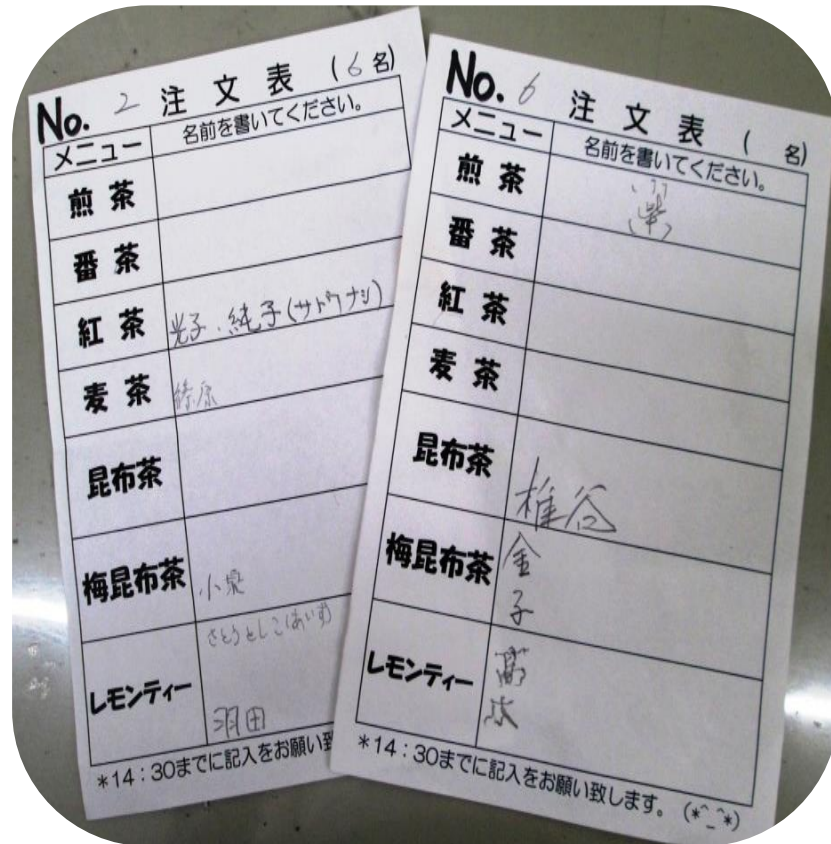 No. 2 注文表 (6名)
メニュー 名前を書いてください。
煎茶
番茶
紅茶 光子、純子(サトウナシ)
麦茶 篠原
昆布茶
梅昆布茶 小泉
レモンティー さとうとしこ(あいす)
羽田
*14:30までに記入をお願い致
No. 6 注文表 ( 名)
メニュー 名前を書いてください。
煎茶
番茶
紅茶
麦茶
昆布茶 椎谷
梅昆布茶 金子
レモンティー
*14:30までに記入をお願い致します。 (*^_^*)